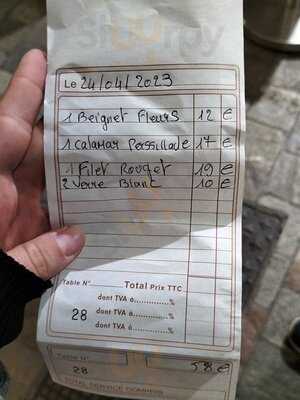 Sluurpy
Le 24/04/2023
1 Beignet Fleurs 12 €
1 Calamar Persillade 17 €
1 Filet Rouget 19 €
2 Verre Blanc 10 €
Table N° Total Prix TTC
dont TVA à..............%
28 dont TVA à..............%
dont TVA à..............%
Table N°
28 58 €
TOTAL SERVICE COMPRIS